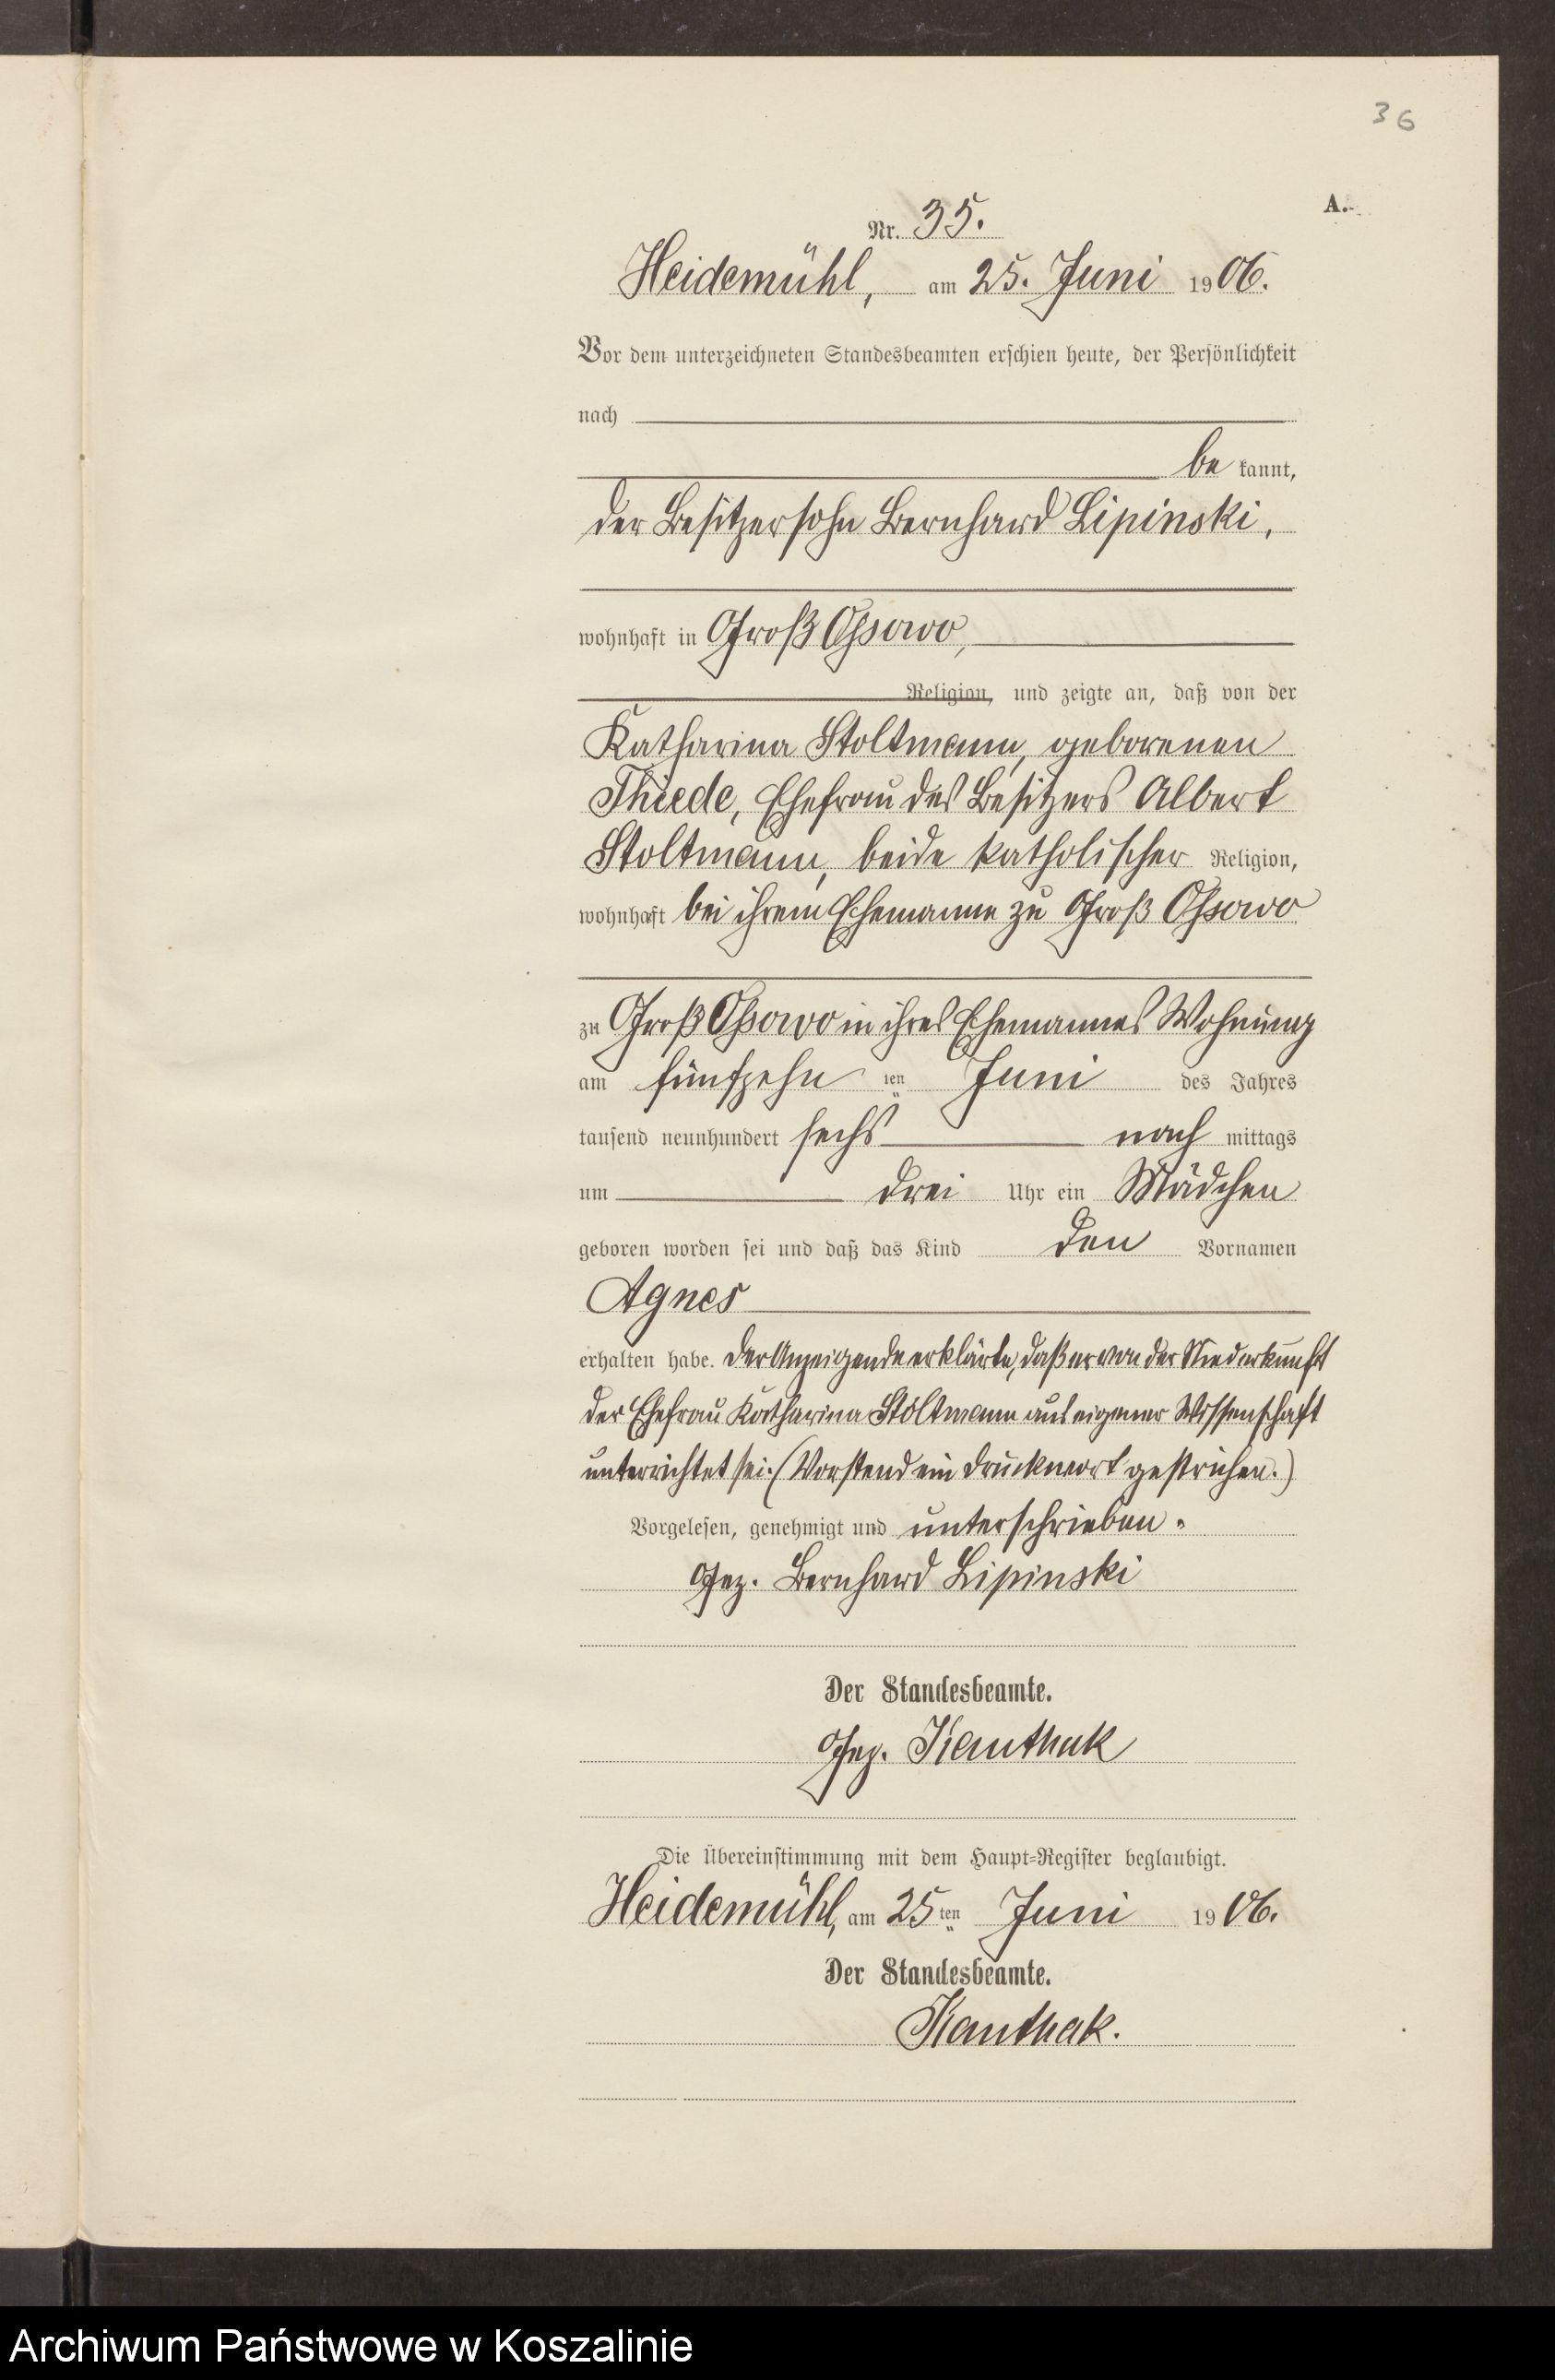 36
A.
Nr. 35.
Heidemühl, am 25. Juni 1906.
Vor dem unterzeichneten Standesbeamten erschien heute, der Persönlichkeit
nach
be kannt,
der Besitzersohn Bernhard Lipinski,
wohnhaft in Groß Ossowo,
Religion, und zeigte an, daß von der
Katharina Stoltmann, geborenen
Thiede, Ehefrau des Besitzers Albert
Stoltmann, beide katholischer Religion,
wohnhaft bei ihrem Ehemanne zu Groß Ossowo
zu Groß Ossowo in ihres Ehemannes Wohnung
am fünfzehn ten Juni des Jahres
tausend neunhundert sechs nach mittags
um drei Uhr ein Mädchen
geboren worden sei und daß das Kind den Vornamen
Agnes
erhalten habe. Der Anzeigende erklärte, daß er von der Niederkunft
der Ehefrau Katharina Stoltmann aus eigener Wissenschaft
unterrichtet sei. (Vorstend ein Druckwort gestrichen.)
Vorgelesen, genehmigt und unterschrieben.
Gez. Bernhard Lipinski
Der Standesbeamte.
Gez. Kanthak
Die Übereinstimmung mit dem Haupt-Register beglaubigt.
Heidemühl, am 25ten Juni 1906.
Der Standesbeamte.
Kanthak.
Archiwum Państwowe w Koszalinie